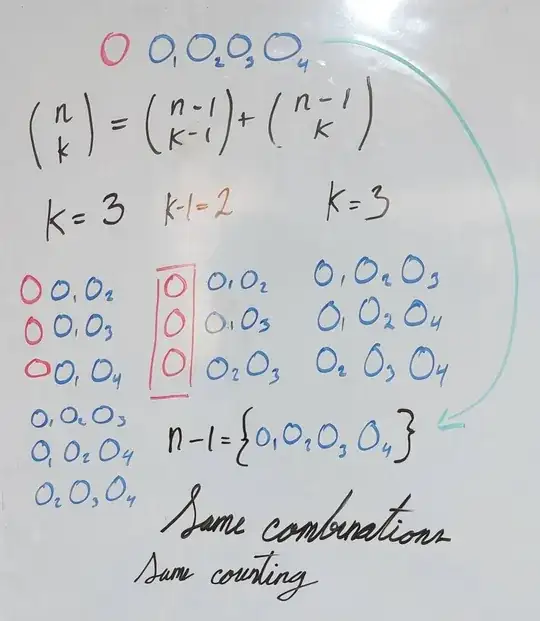 O O₁ O₂ O₃ O₄
(n k) = (n-1 k-1) + (n-1 k)
k = 3 k-1=2 k=3
O O₁ O₂ O O₁ O₂ O₁ O₂ O₃
O O₁ O₃ O O₁ O₃ O₁ O₂ O₄
O O₁ O₄ O O₂ O₃ O₂ O₃ O₄
O₁ O₂ O₃
O₁ O₂ O₄
O₂ O₃ O₄
n-1={O₁ O₂ O₃ O₄}
Same combinations
Same counting